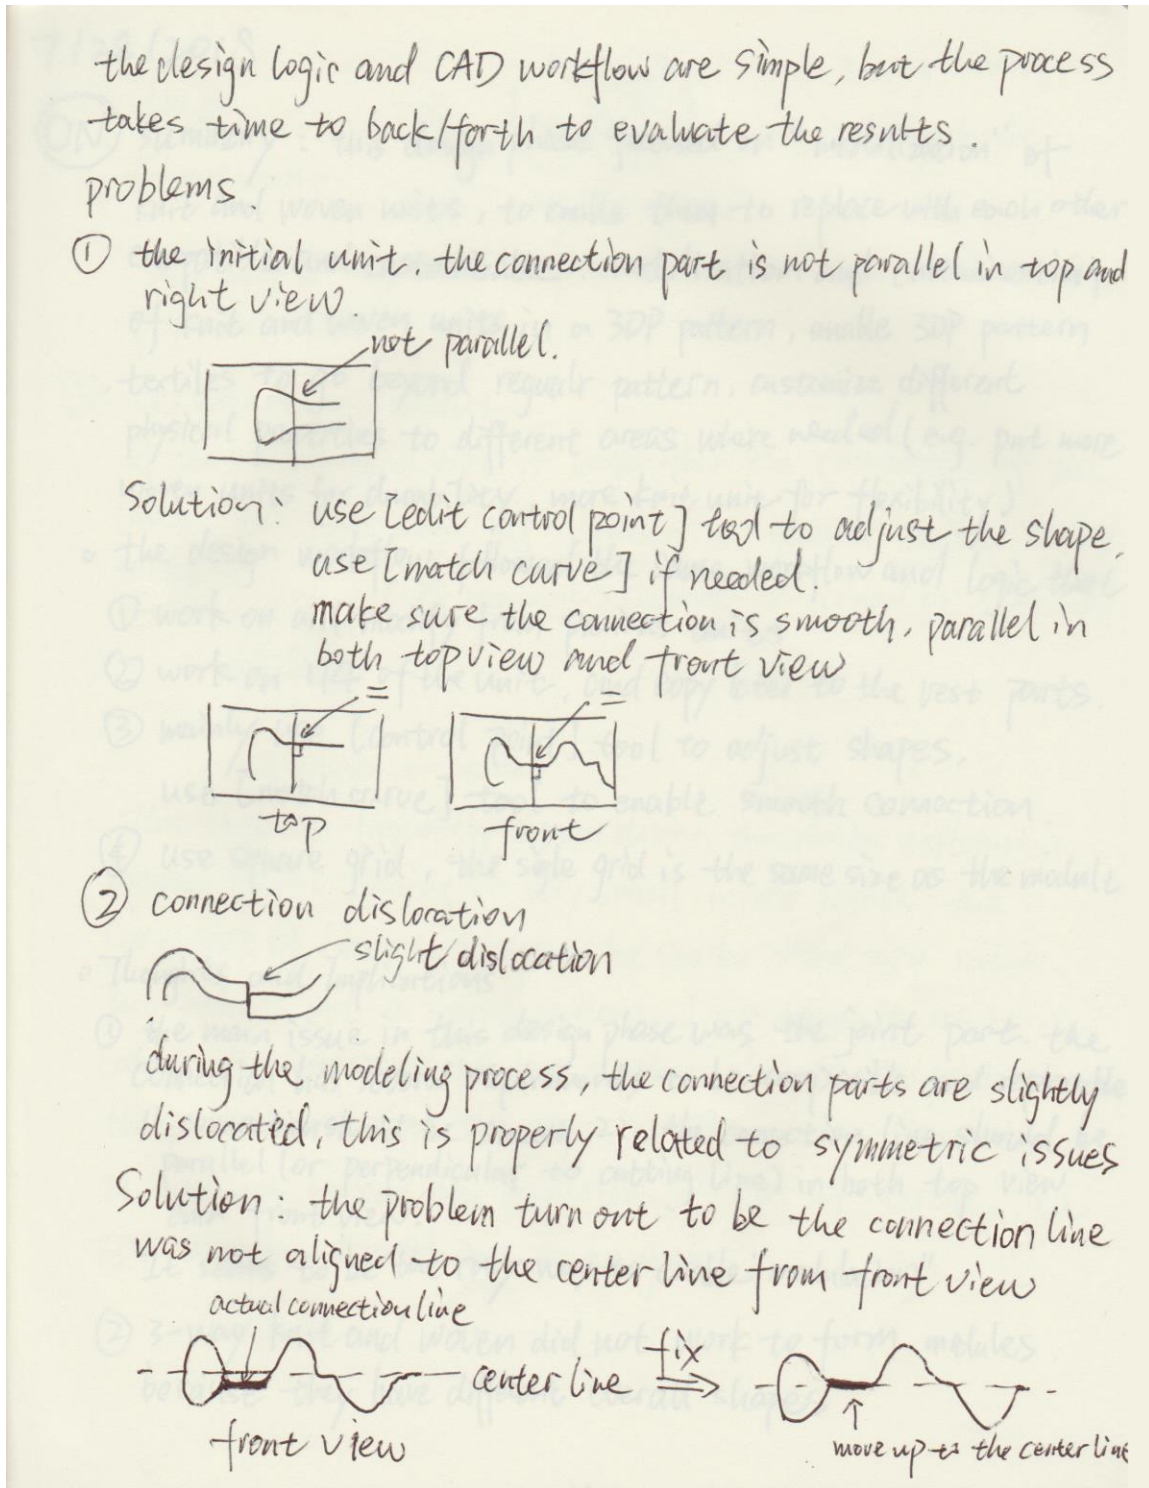 the design logic and CAD workflow are simple, but the process
takes time to back/forth to evaluate the results.
problems.
① the initial unit. the connection part is not parallel in top and
right view.
not parallel.
Solution: use [edit control point] tool to adjust the shape,
use [match curve] if needed.
make sure the connection is smooth, parallel in
both top view and front view
= =
top front
② connection dislocation
slight dislocation
during the modeling process, the connection parts are slightly
dislocated, this is properly related to symmetric issues
Solution: the problem turn out to be the connection line
was not aligned to the center line from front view
actual connection line
center line fix
front view move up to the center line